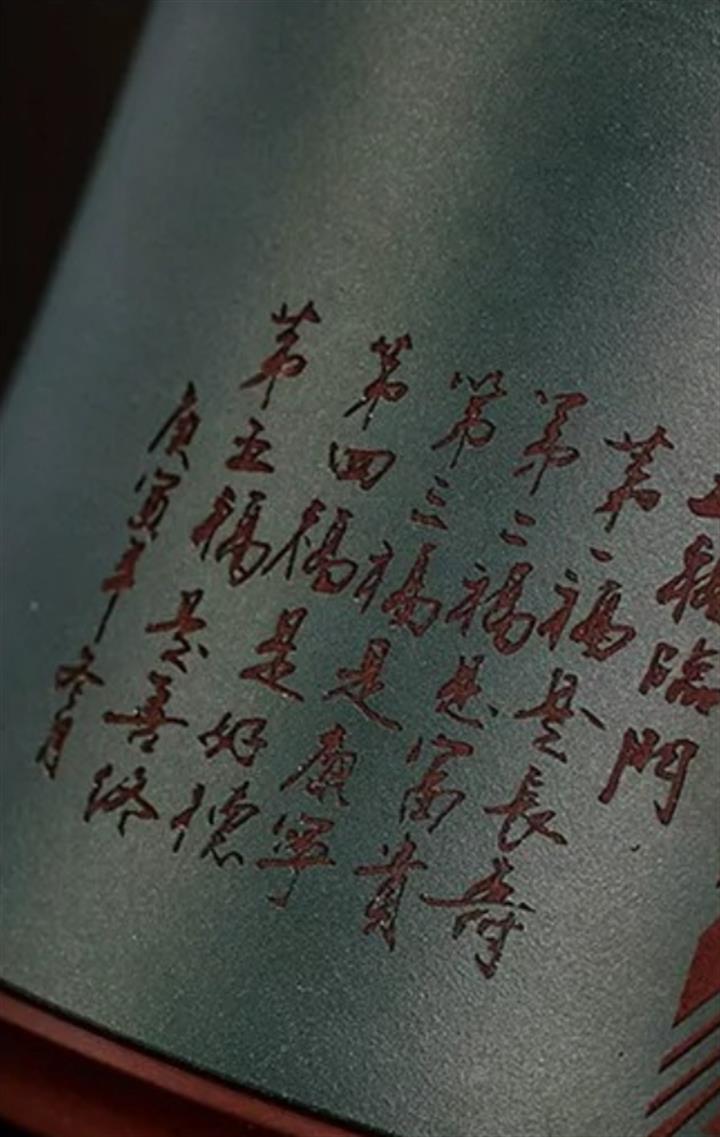 五福臨門
第一福是長壽
第二福是富貴
第三福是康寧
第四福是好德
第五福是善終
庚寅年冬月